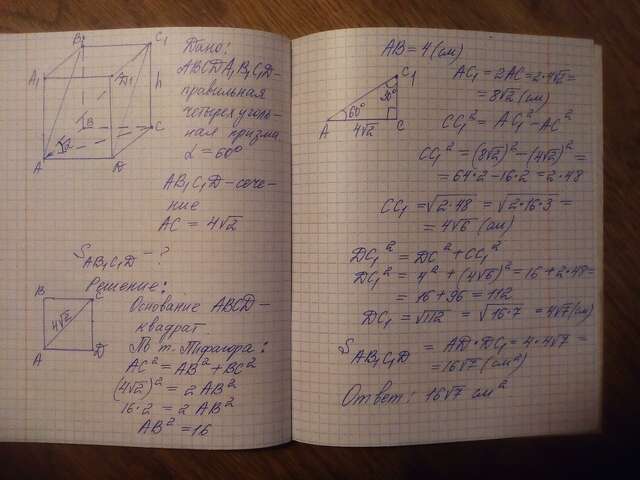 B1
C1
A1
D1
h
B
C
√2
A
D
Дано:
ABCDA1B1C1D-
правильная
четерехуголь-
ная призма
α = 60°
AB1C1D - сече-
ние
AC = 4√2
S AB1C1D - ?
Решение:
B
C
4√2
A
D
Основание ABCD -
квадрат
По т. Пифагора:
AC² = AB² + BC²
(4√2)² = 2 AB²
16·2 = 2 AB²
AB² = 16
AB = 4 (см)
C1
30°
60°
A
4√2
C
AC1 = 2AC = 2·4√2 =
= 8√2 (см)
CC1² = AC1² - AC²
CC1² = (8√2)² - (4√2)² =
= 64·2 - 16·2 = 2·48
CC1 = √2·48 = √2·16·3 =
= 4√6 (см)
DC1² = DC² + CC1²
DC1² = 4² + (4√6)² = 16 + 2·48 =
= 16 + 96 = 112
DC1 = √112 = √16·7 = 4√7 (см)
S AB1C1D = AD · DC1 = 4·4√7 =
= 16√7 (см²)
Ответ: 16√7 см²